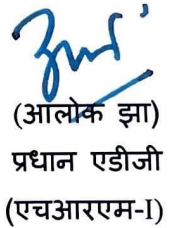 (आलोक झा)
प्रधान एडीजी
(एचआरएम-I)